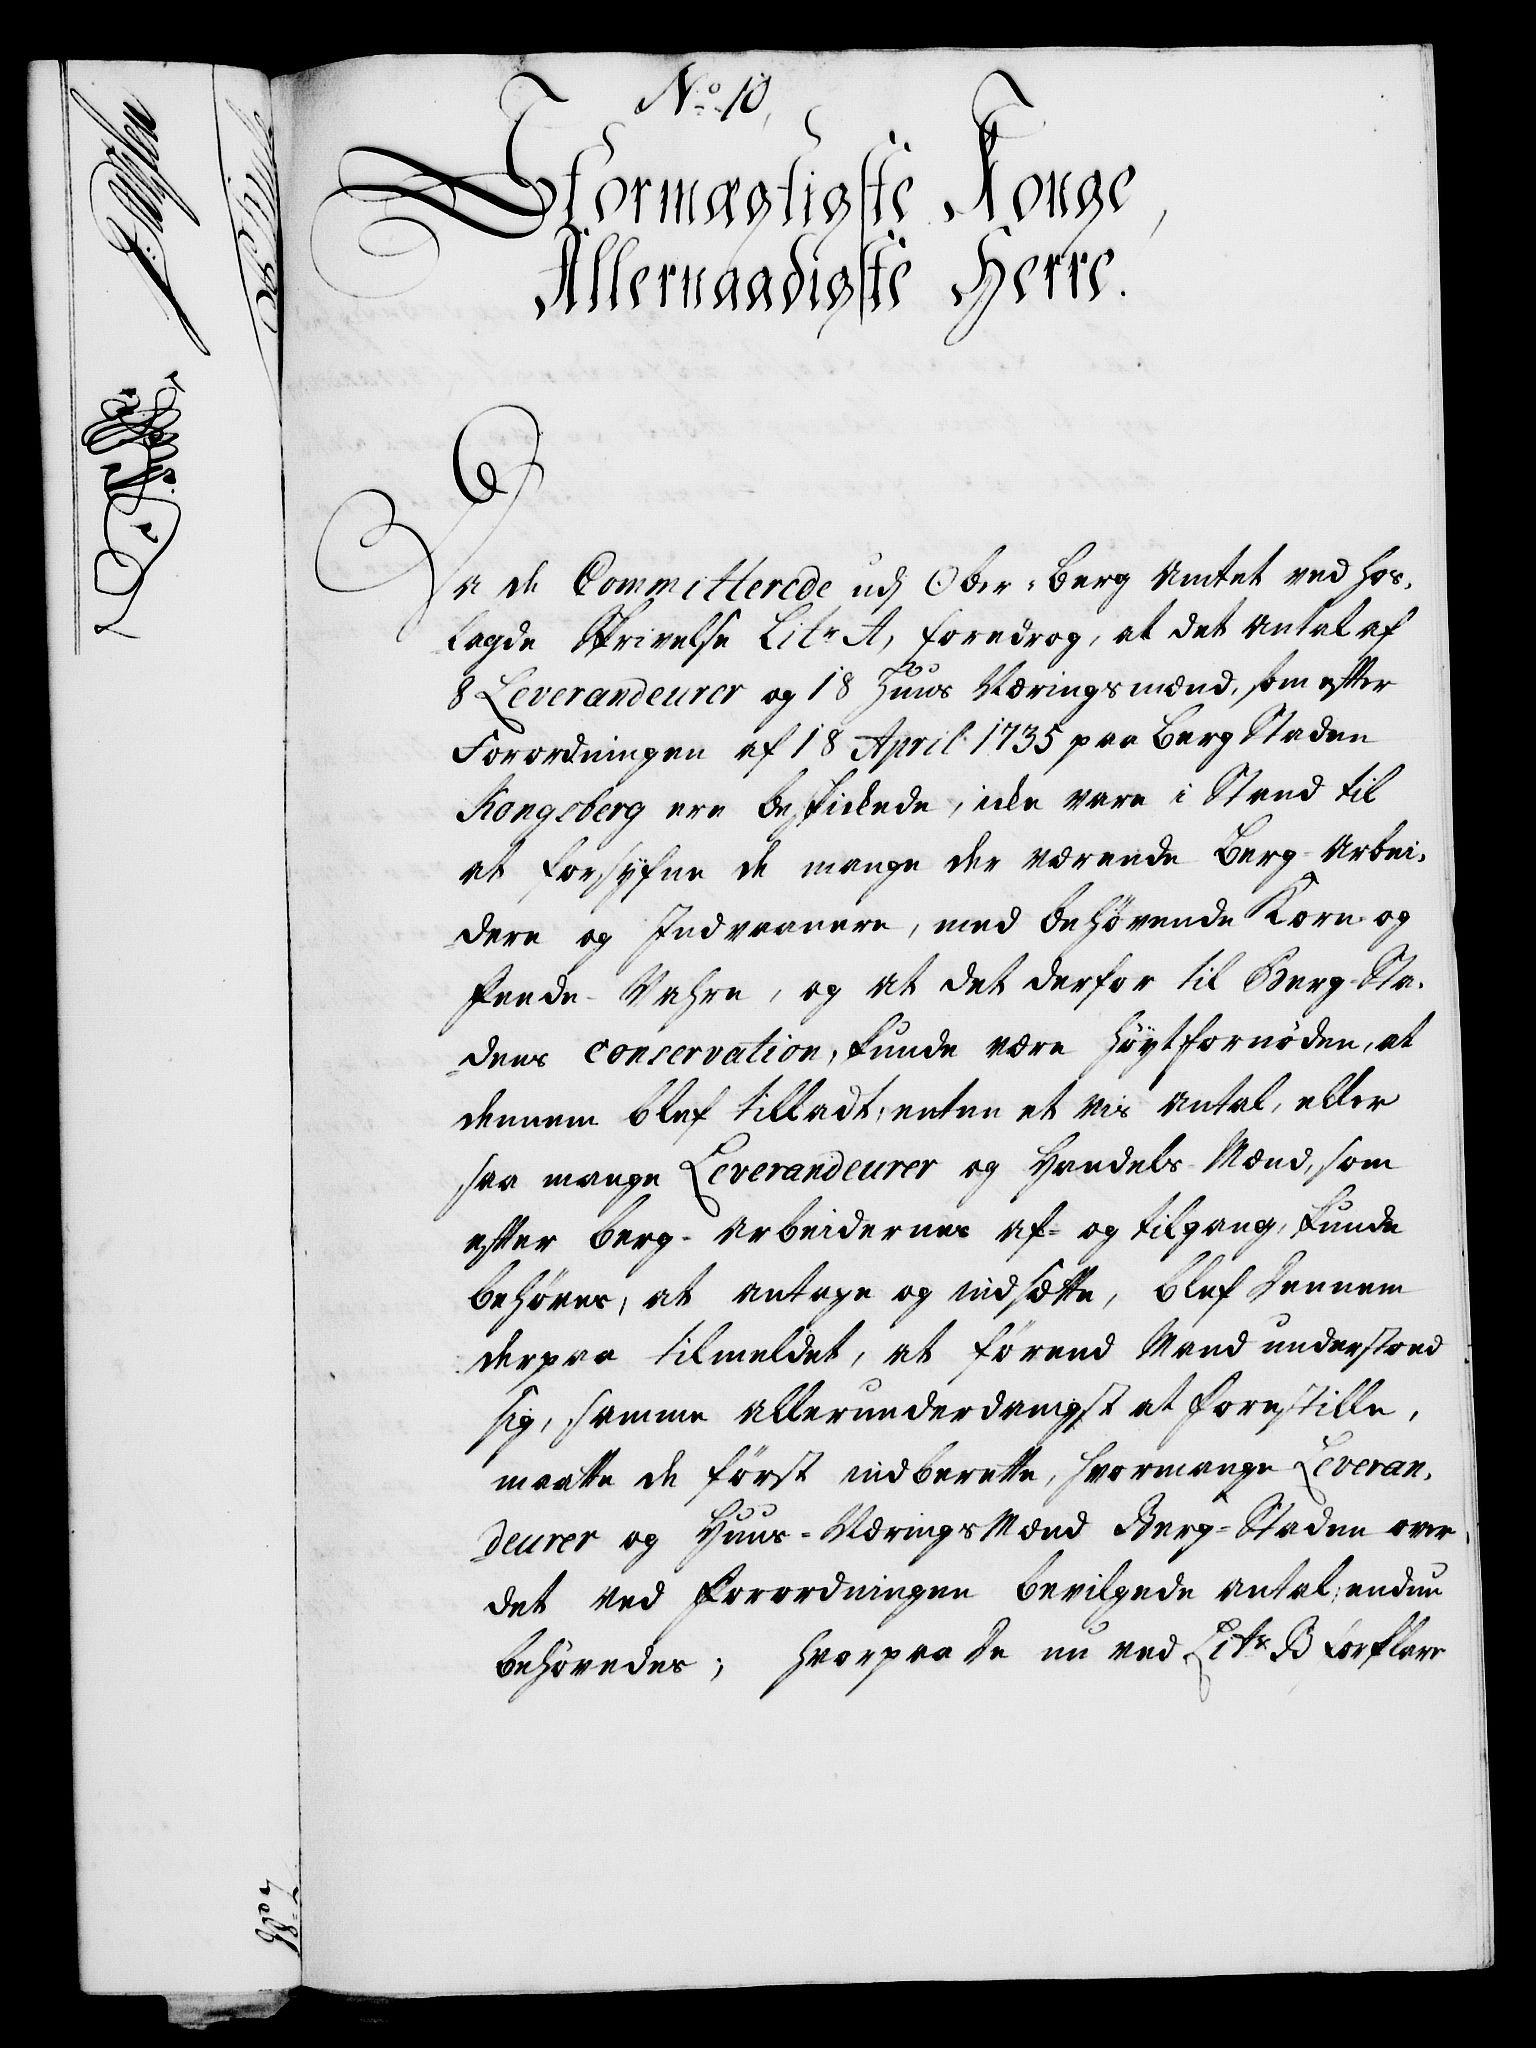 No. 10,
Stormægtigste Konge,
Allernaadigste Herre.
Da de Committerede udj Ober-Berg Amtet ved hos-
lagde Skrivelse Litr A, foredrog, at det Antal af
8 Leverandeurer og 18 Huus Næringsmænd, som efter
Forordningen af 18 April 1735 paa Berg Staden
Kongsberg ere beskickede, icke vare i Stand til
at forsyfne de mange der værende Berg-Arbei-
dere og Indvaanere, med behøvende Korn og
Feede-Vahre, og at det derfor til Berg-Sta-
dens conservation, kunde være høytfornöden, at
dennem blef tilladt, enten et vis Antal, eller
saa mange Leverandeurer og Handels-Mænd, som
efter Berg-Arbeidernes af- og tilgang, kunde
behøves, at antage og indsætte, blef dennem
derpaa tilmeldet, at förend Mand understoed
sig, samme allerunderdanigst at forestille,
maatte de först indberette, hvormange Leveran-
deurer og Huus-Nærings Mænd Berg-Staden over
det ved Forordningen bevilgede Antal, endnu
behövedes; hvorpaa de nu ved Litr. B forklare